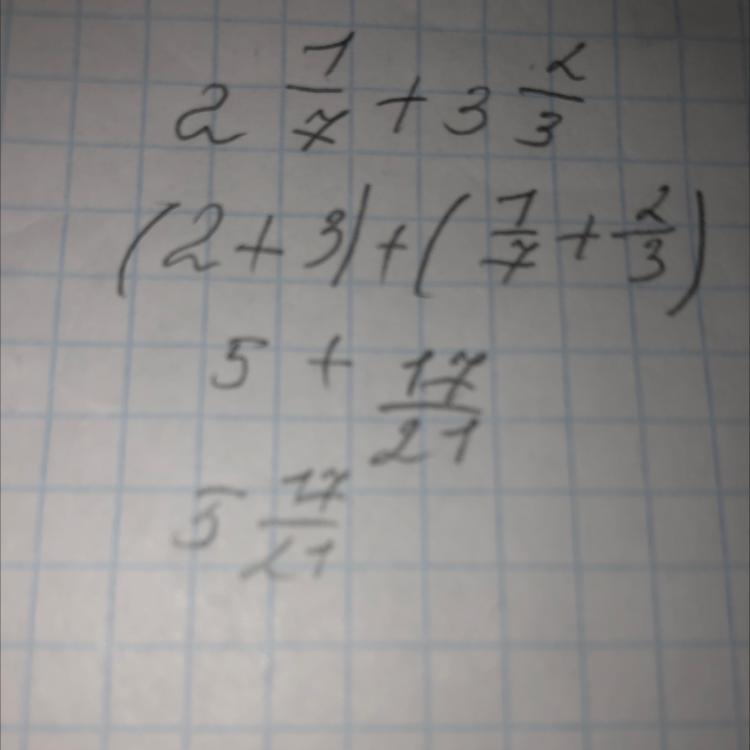 2 1/7 + 3 2/3
(2 + 3) + (1/7 + 2/3)
5 + 17/21
5 17/21